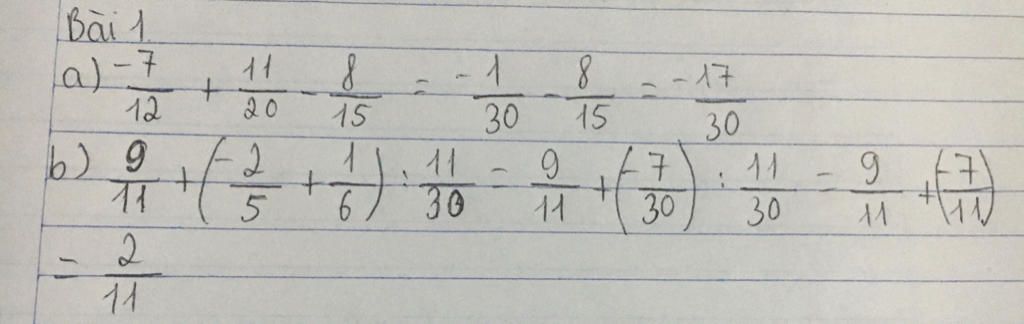 Bài 1
a) -7/12 + 11/20 - 8/15 = -1/30 - 8/15 = -17/30
b) 9/11 + (-2/5 + 1/6) : 11/30 = 9/11 + (-7/30) : 11/30 = 9/11 + (-7/11)
= 2/11